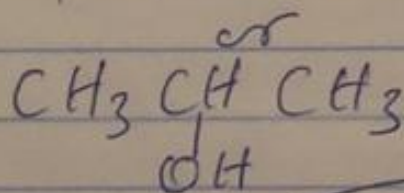 or
CH3 CH CH3
OH